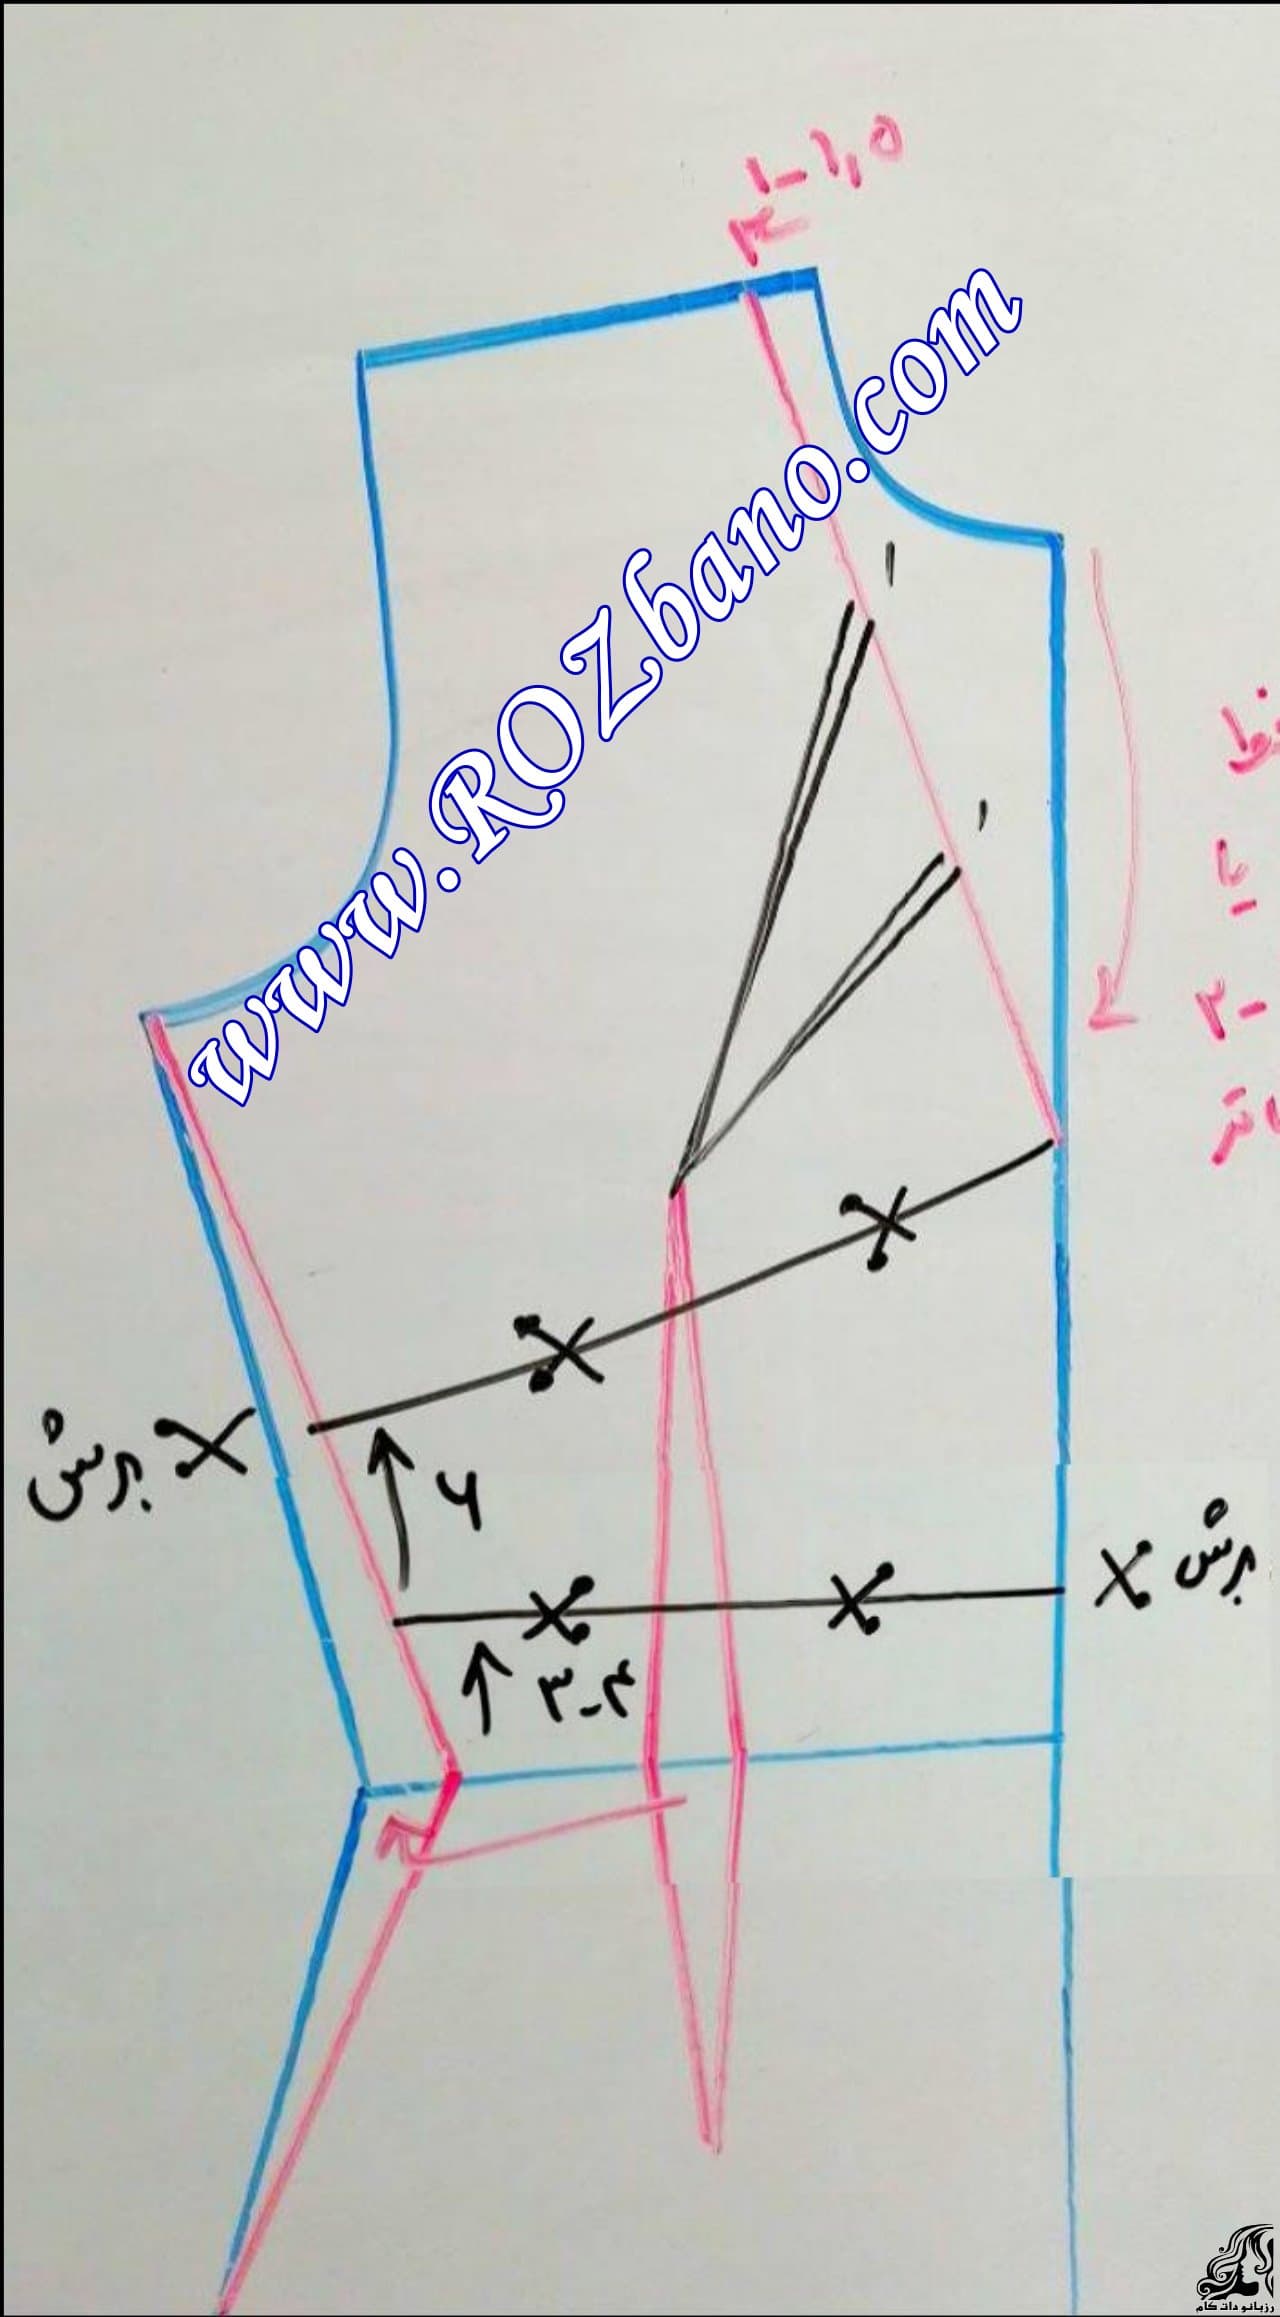 ۱-۱,۵
www.ROZbano.com
۱
۱
خط
یا
۲-
برش
۶
برش
۳-۴
رزبانو دات کام